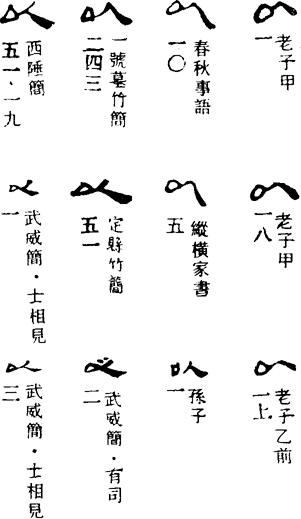 以
老子甲
一
以
老子甲
一八
以
老子乙前
一上
以
春秋事語
一〇
以
縱橫家書
五
以
孫子
一
以
一號墓竹簡
二四三
以
定縣竹簡
五一
以
武威簡・有司
二
以
西陲簡
五一・一九
以
武威簡・士相見
一
以
武威簡・士相見
三